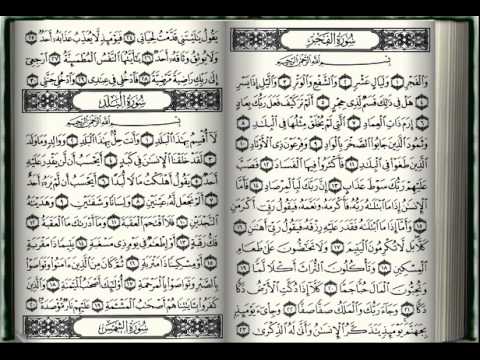 سُورَةُ الفَجْرِ
بِسْمِ اللَّهِ الرَّحْمَٰنِ الرَّحِيمِ
وَالْفَجْرِ ١ وَلَيَالٍ عَشْرٍ ٢ وَالشَّفْعِ وَالْوَتْرِ ٣ وَاللَّيْلِ إِذَا يَسْرِ
٤ هَلْ فِي ذَٰلِكَ قَسَمٌ لِّذِي حِجْرٍ ٥ أَلَمْ تَرَ كَيْفَ فَعَلَ رَبُّكَ بِعَادٍ
٦ إِرَمَ ذَاتِ الْعِمَادِ ٧ الَّتِي لَمْ يُخْلَقْ مِثْلُهَا فِي الْبِلَادِ ٨
وَثَمُودَ الَّذِينَ جَابُوا الصَّخْرَ بِالْوَادِ ٩ وَفِرْعَوْنَ ذِي الْأَوْتَادِ ١٠
الَّذِينَ طَغَوْا فِي الْبِلَادِ ١١ فَأَكْثَرُوا فِيهَا الْفَسَادَ ١٢ فَصَبَّ
عَلَيْهِمْ رَبُّكَ سَوْطَ عَذَابٍ ١٣ إِنَّ رَبَّكَ لَبِالْمِرْصَادِ ١٤ فَأَمَّا
الْإِنسَانُ إِذَا مَا ابْتَلَاهُ رَبُّهُ فَأَكْرَمَهُ وَنَعَّمَهُ فَيَقُولُ رَبِّي أَكْرَمَنِ
١٥ وَأَمَّا إِذَا مَا ابْتَلَاهُ فَقَدَرَ عَلَيْهِ رِزْقَهُ فَيَقُولُ رَبِّي أَهَانَنِ
١٦ كَلَّا بَل لَّا تُكْرِمُونَ الْيَتِيمَ ١٧ وَلَا تَحَاضُّونَ عَلَىٰ طَعَامِ
الْمِسْكِينِ ١٨ وَتَأْكُلُونَ التُّرَاثَ أَكْلًا لَّمًّا
١٩ وَتُحِبُّونَ الْمَالَ حُبًّا جَمًّا ٢٠ كَلَّا إِذَا دُكَّتِ الْأَرْضُ دَكًّا
دَكًّا ٢١ وَجَاءَ رَبُّكَ وَالْمَلَكُ صَفًّا صَفًّا ٢٢ وَجِيءَ يَوْمَئِذٍ
بِجَهَنَّمَ يَوْمَئِذٍ يَتَذَكَّرُ الْإِنسَانُ وَأَنَّىٰ لَهُ الذِّكْرَىٰ ٢٣
يَقُولُ يَا لَيْتَنِي قَدَّمْتُ لِحَيَاتِي ٢٤ فَيَوْمَئِذٍ لَّا يُعَذِّبُ عَذَابَهُ أَحَدٌ ٢٥
وَلَا يُوثِقُ وَثَاقَهُ أَحَدٌ ٢٦ يَا أَيَّتُهَا النَّفْسُ الْمُطْمَئِنَّةُ ٢٧ ارْجِعِي
إِلَىٰ رَبِّكِ رَاضِيَةً مَّرْضِيَّةً ٢٨ فَادْخُلِي فِي عِبَادِي ٢٩ وَادْخُلِي جَنَّتِي ٣٠
سُورَةُ البَلَدِ
بِسْمِ اللَّهِ الرَّحْمَٰنِ الرَّحِيمِ
لَا أُقْسِمُ بِهَٰذَا الْبَلَدِ ١ وَأَنتَ حِلٌّ بِهَٰذَا الْبَلَدِ ٢ وَوَالِدٍ وَمَا وَلَدَ
٣ لَقَدْ خَلَقْنَا الْإِنسَانَ فِي كَبَدٍ ٤ أَيَحْسَبُ أَن لَّن يَقْدِرَ عَلَيْهِ
أَحَدٌ ٥ يَقُولُ أَهْلَكْتُ مَالًا لُّبَدًا ٦ أَيَحْسَبُ أَن لَّمْ يَرَهُ أَحَدٌ
٧ أَلَمْ نَجْعَل لَّهُ عَيْنَيْنِ ٨ وَلِسَانًا وَشَفَتَيْنِ ٩ وَهَدَيْنَاهُ
النَّجْدَيْنِ ١٠ فَلَا اقْتَحَمَ الْعَقَبَةَ ١١ وَمَا أَدْرَاكَ مَا الْعَقَبَةُ ١٢
فَكُّ رَقَبَةٍ ١٣ أَوْ إِطْعَامٌ فِي يَوْمٍ ذِي مَسْغَبَةٍ ١٤ يَتِيمًا ذَا مَقْرَبَةٍ
١٥ أَوْ مِسْكِينًا ذَا مَتْرَبَةٍ ١٦ ثُمَّ كَانَ مِنَ الَّذِينَ آمَنُوا وَتَوَاصَوْا
بِالصَّبْرِ وَتَوَاصَوْا بِالْمَرْحَمَةِ ١٧ أُولَٰئِكَ أَصْحَابُ الْمَيْمَنَةِ ١٨ وَالَّذِينَ
كَفَرُوا بِآيَاتِنَا هُمْ أَصْحَابُ الْمَشْأَمَةِ ١٩ عَلَيْهِمْ نَارٌ مُّؤْصَدَةٌ ٢٠
سُورَةُ الشَّمْسِ